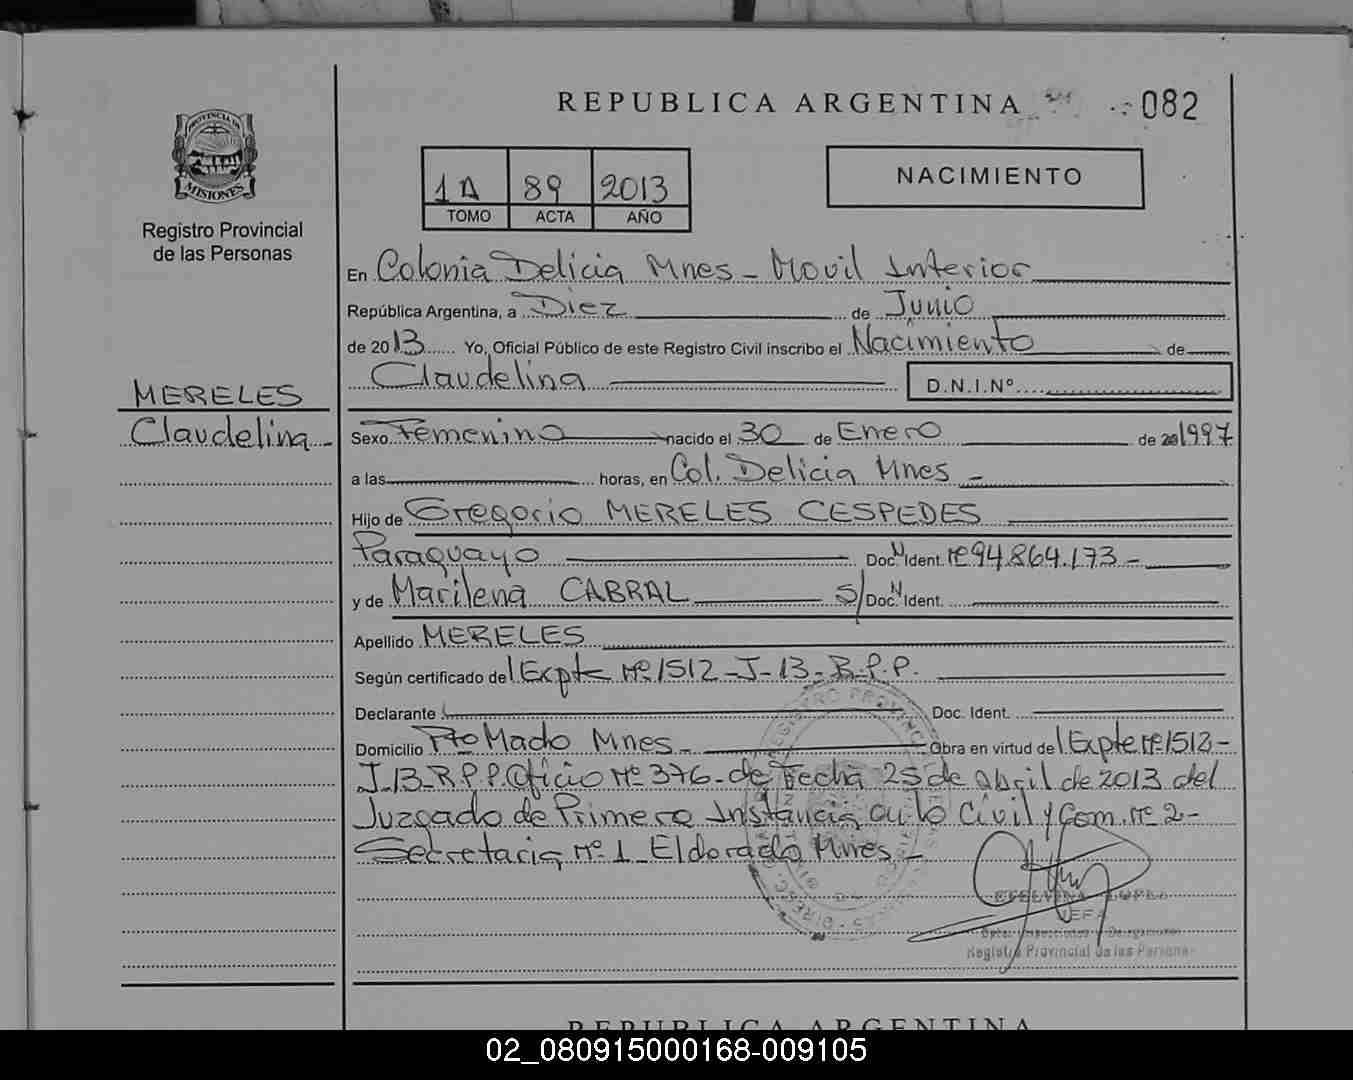 REPUBLICA ARGENTINA
082
PROVINCIA DE
MISIONES
Registro Provincial
de las Personas
1A 89 2013
TOMO ACTA AÑO
NACIMIENTO
En Colonia Delicia Mnes - Movil Interior
República Argentina, a Diez de Junio
de 2013 Yo, Oficial Público de este Registro Civil inscribo el Nacimiento de
Claudelina D.N.I.Nº
MERELES
Claudelina -
Sexo Femenino nacido el 30 de Enero de 20 1997
a las horas, en Col. Delicia Mnes -
Hijo de Gregorio MERELES CESPEDES
Paraguayo Doc. N Ident. Nº 94.864.173 -
y de Marilena CABRAL S/ Doc. N Ident.
Apellido MERELES
Según certificado de Expte Nº 1512-J-13-R.P.P.
Declarante Doc. Ident.
Domicilio Pto Mado Mnes - Obra en virtud de Expte Nº 1512-
J-13-R.P.P. Oficio Nº 376- de Fecha 25 de abril de 2013 del
Juzgado de Primera Instancia en lo Civil y Com. Nº 2-
Secretaria Nº 1 Eldorado Mnes -
LOPEZ
JEFA
Registro Provincial de las Personas
REPUBLICA ARGENTINA
02_080915000168-009105